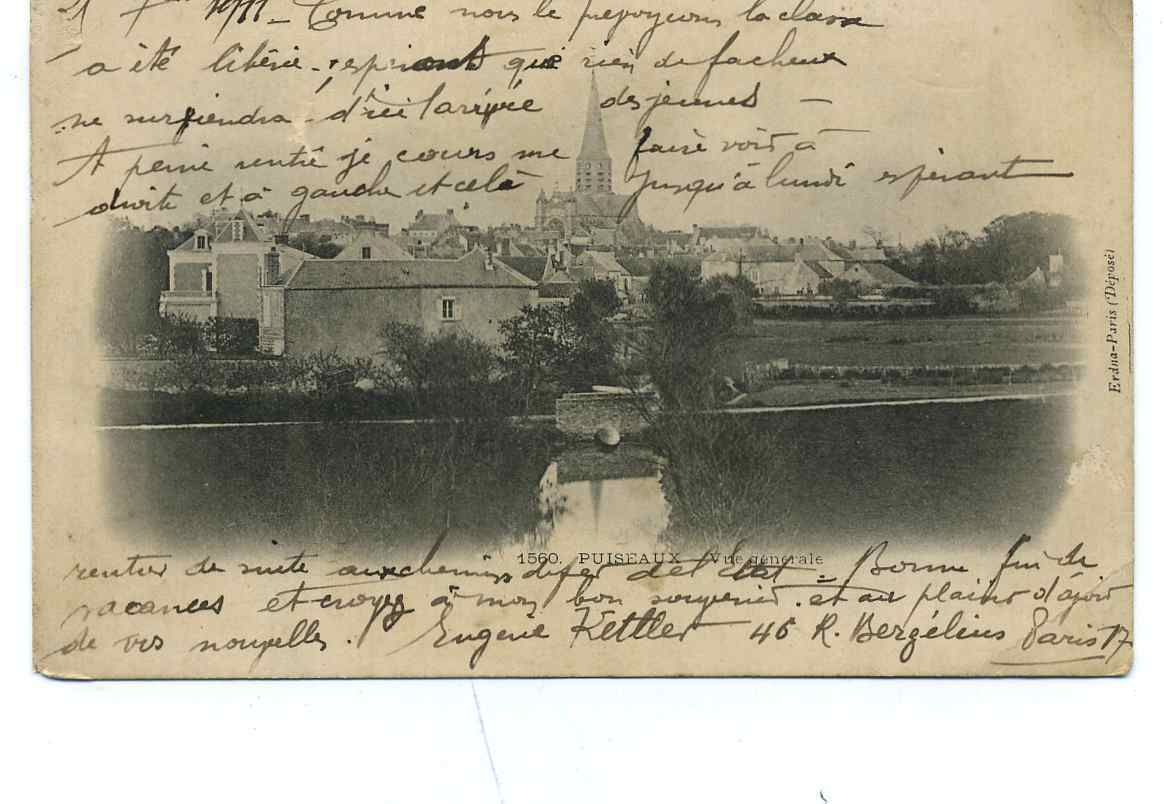 1911 - Comme nous le prévoyions la classe
a été libérée - espérant que rien de facheux
ne surviendra d'ici l'arrivée des jeunes -
A peine rentré je cours me faire voir à
droite et à gauche et celà jusqu'à lundi espérant
Erdna-Paris (Déposé)
1560. PUISEAUX - Vue générale
rentrer de suite aux chemins de fer de l'Etat - Bonne fin de
vacances et croyez à mon bon souvenir. et au plaisir d'avoir
de vos nouvelles. Eugène Kettler 46 R. Berzélius Paris 17